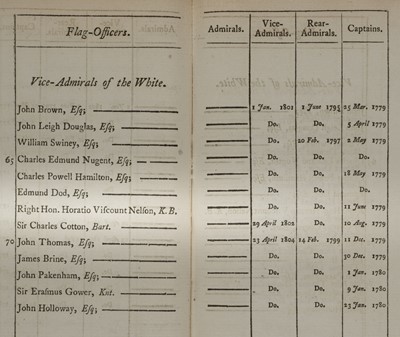 Flag-Officers. Admirals. Vice-Admirals. Rear-Admirals. Captains.
Vice-Admirals of the White.
John Brown, Eſq; 1 Jan. 1801 1 June 1795 25 Mar. 1779
John Leigh Douglas, Eſq; Do. Do. 5 April 1779
William Swiney, Eſq; Do. 20 Feb. 1797 2 May 1779
65 Charles Edmund Nugent, Eſq; Do. Do. Do.
Charles Powell Hamilton, Eſq; Do. Do. 18 May 1779
Edmund Dod, Eſq; Do. Do. Do.
Right Hon. Horatio Viſcount Nelſon, K. B. Do. Do. 11 June 1779
Sir Charles Cotton, Bart. 29 April 1802 Do. 10 Aug. 1779
70 John Thomas, Eſq; 23 April 1804 14 Feb. 1799 11 Dec. 1779
James Brine, Eſq; Do. Do. 30 Dec. 1779
John Pakenham, Eſq; Do. Do. 1 Jan. 1780
Sir Eraſmus Gower, Knt. Do. Do. 9 Jan. 1780
John Holloway, Eſq; Do. Do. 23 Jan. 1780